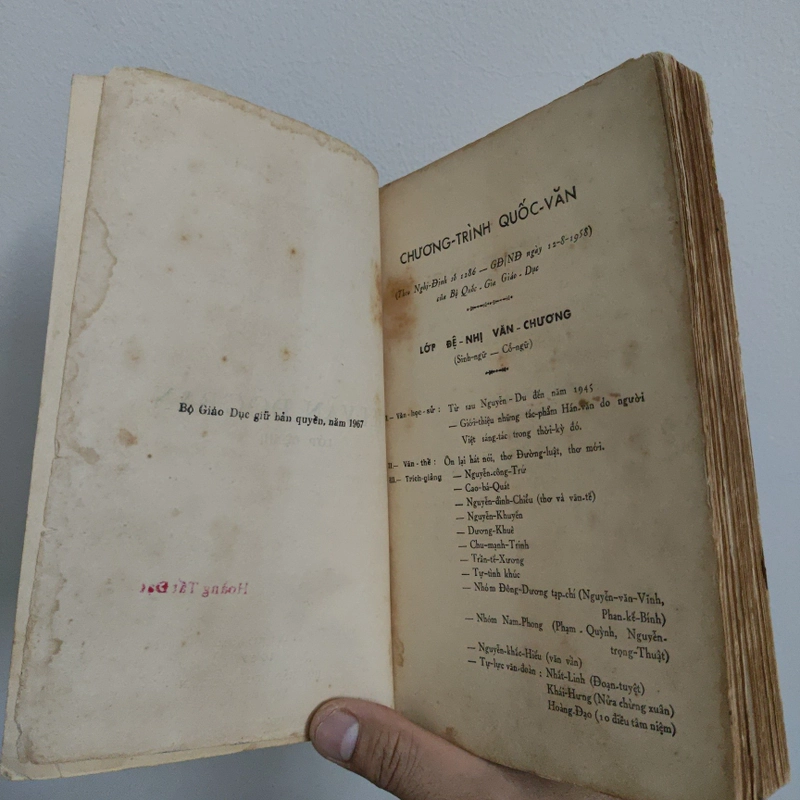 Bộ Giáo Dục giữ bản quyền, năm 1967
Hoàng Tất Đạt
CHƯƠNG-TRÌNH QUỐC-VĂN
(Theo Nghị-Định số 1286 — GD/NĐ ngày 12-8-1958)
của Bộ Quốc-Gia Giáo-Dục
LỚP ĐỆ-NHỊ VĂN-CHƯƠNG
(Sinh-ngữ — Cổ-ngữ)
I.— Văn-học-sử : Từ sau Nguyễn-Du đến năm 1945
— Giới-thiệu những tác-phẩm Hán-văn do người
Việt sáng-tác trong thời-kỳ đó.
II.— Văn-thể : Ôn lại hát nói, thơ Đường-luật, thơ mới.
III.— Trích-giảng — Nguyễn-công-Trứ
— Cao-bá-Quát
— Nguyễn-đình-Chiểu (thơ và văn-tế)
— Nguyễn-Khuyến
— Dương-Khuê
— Chu-mạnh-Trinh
— Trần-tế-Xương
— Tự-tình khúc
— Nhóm Đông-Dương tạp-chí (Nguyễn-văn-Vĩnh,
Phan-kế-Bính)
— Nhóm Nam-Phong (Phạm-Quỳnh, Nguyễn-
trọng-Thuật)
— Nguyễn-khắc-Hiếu (văn vần)
— Tự-lực văn-đoàn : Nhất-Linh (Đoạn-tuyệt)
Khái-Hưng (Nửa chừng xuân)
Hoàng-Đạo (10 điều tâm niệm)